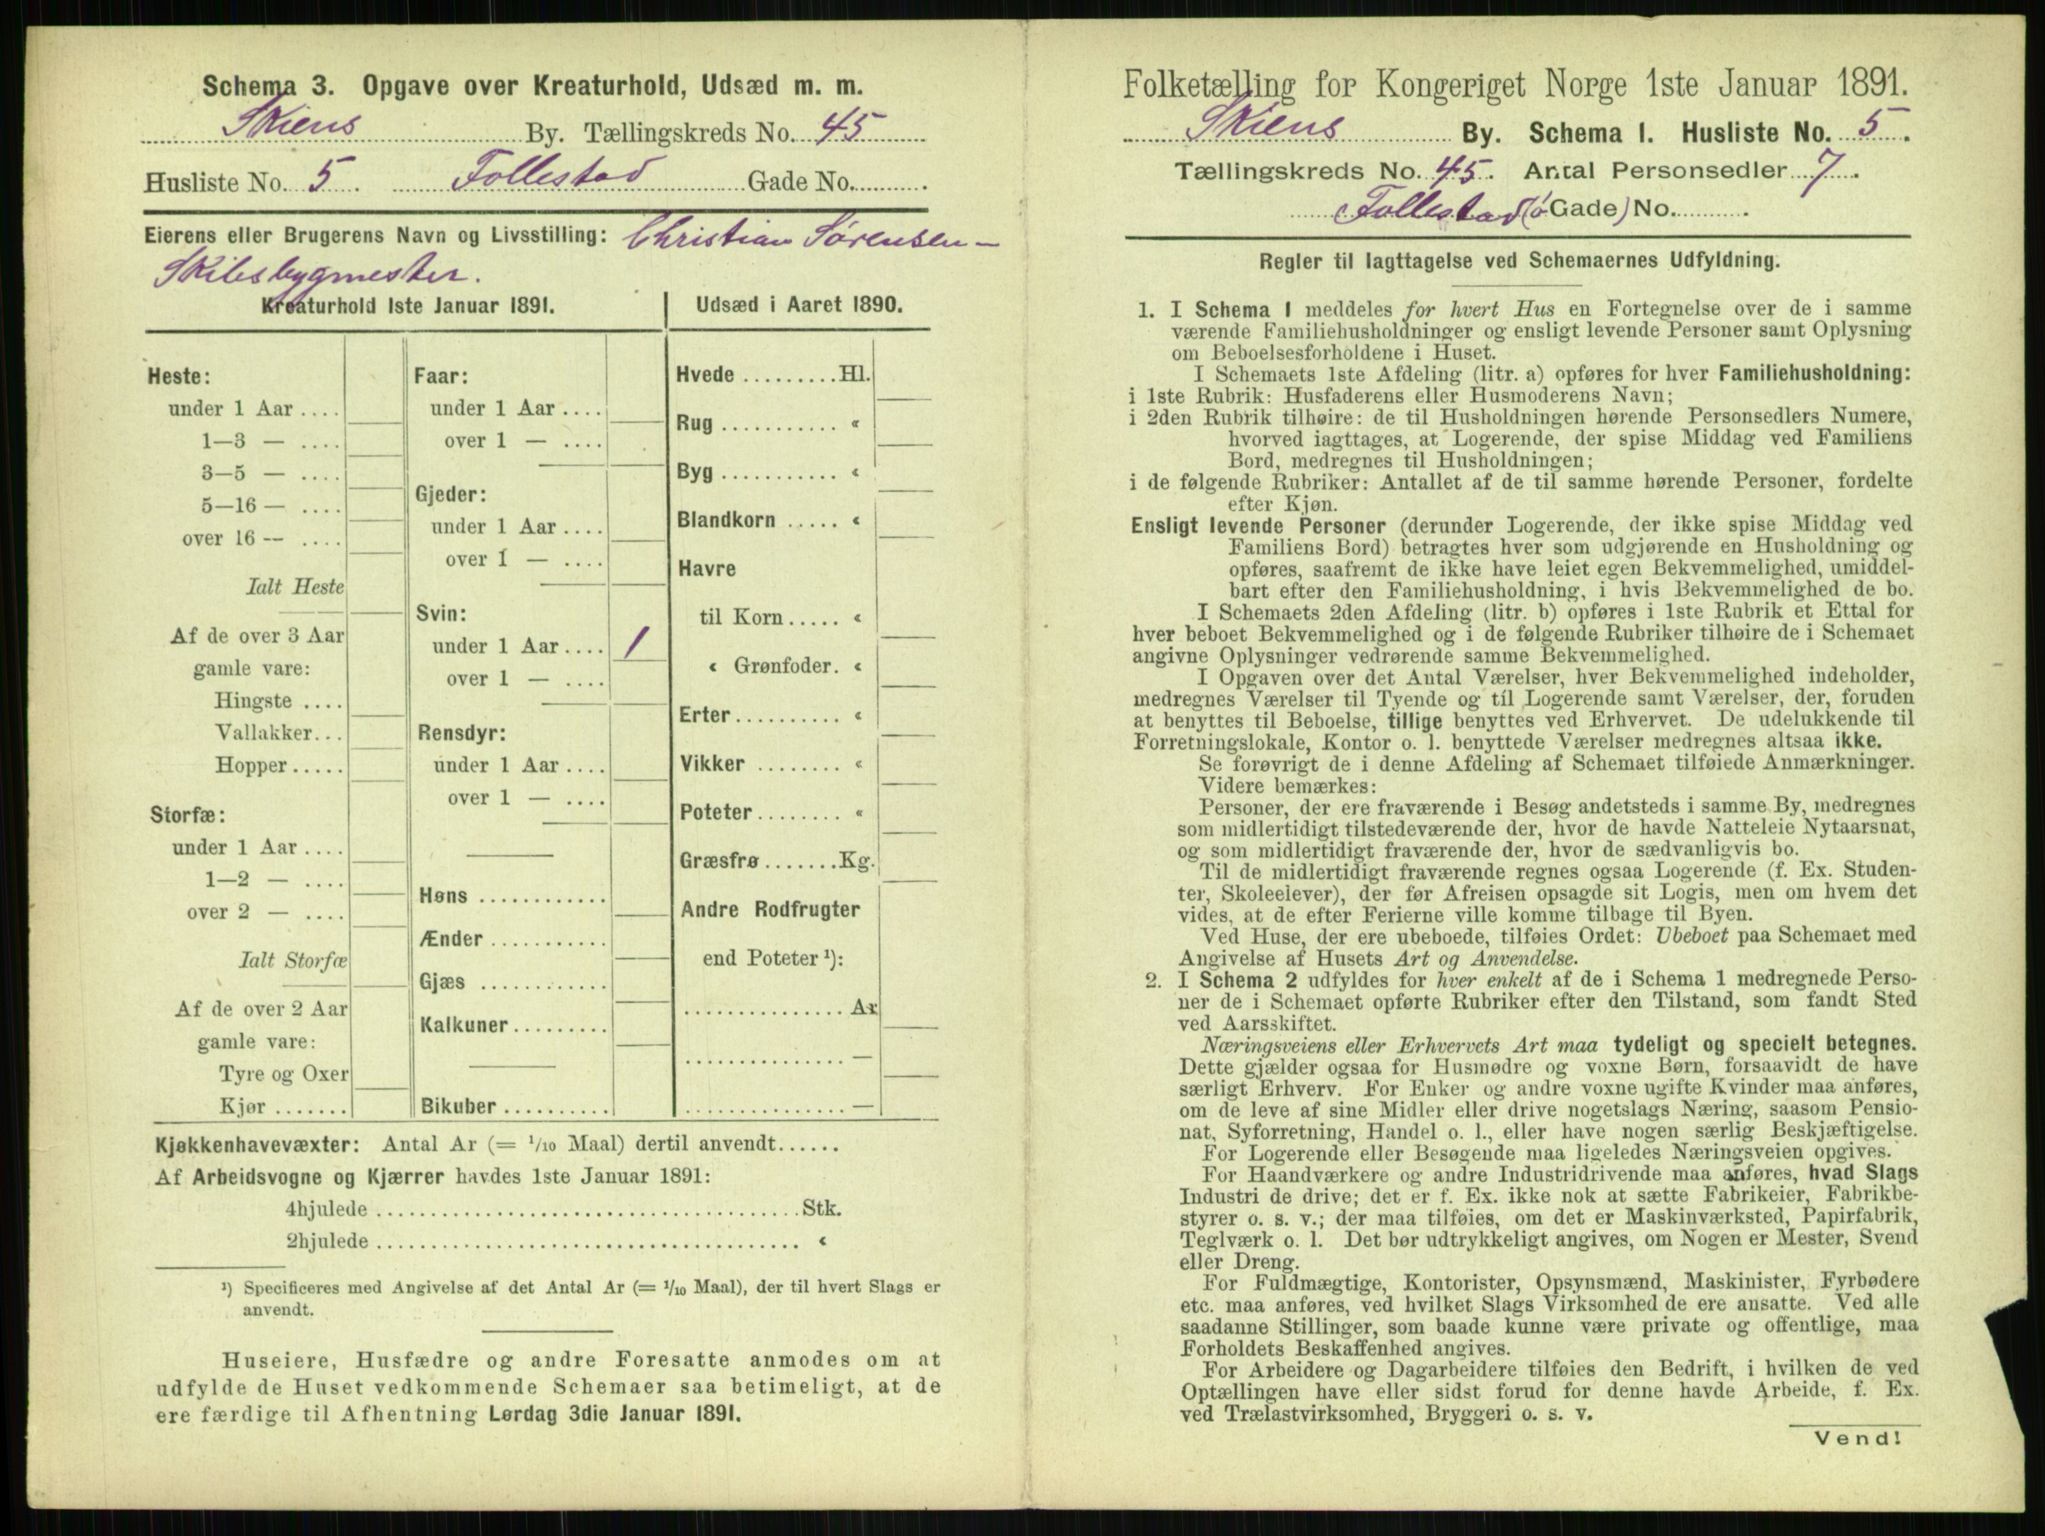 Schema 3. Opgave over Kreaturhold, Udsæd m. m.
Skiens By. Tællingskreds No. 45
Husliste No. 5. Follestad Gade No.
Eierens eller Brugerens Navn og Livsstilling: Christian Sørensen -
Skibsbygmester.
Kreaturhold 1ste Januar 1891.
Heste:
under 1 Aar ....
1—3 — ....
3—5 — ....
5—16 — ....
over 16 -- ....
Ialt Heste
Af de over 3 Aar
gamle vare:
Hingste ....
Vallakker...
Hopper.....
Storfæ:
under 1 Aar ....
1—2 — ....
over 2 — ....
Ialt Storfæ
Af de over 2 Aar
gamle vare:
Tyre og Oxer
Kjør .......
Faar:
under 1 Aar ....
over 1 — ....
Gjeder:
under 1 Aar ....
over 1 — ....
Svin:
under 1 Aar .... 1
over 1 — ....
Rensdyr:
under 1 Aar ....
over 1 — ....
Høns ............
Ænder ...........
Gjæs ............
Kalkuner .........
Bikuber ..........
Udsæd i Aaret 1890.
Hvede .........Hl.
Rug ........... «
Byg ........... «
Blandkorn ..... «
Havre
til Korn ..... «
« Grønfoder. «
Erter.......... «
Vikker ........ «
Poteter........ «
Græsfrø .......Kg.
Andre Rodfrugter
end Poteter ¹):
............... Ar
............... —
............... —
Kjøkkenhavevæxter: Antal Ar (= ¹/₁₀ Maal) dertil anvendt......
Af Arbeidsvogne og Kjærrer havdes 1ste Januar 1891:
4hjulede ......................................Stk.
2hjulede ...................................... «
¹) Specificeres med Angivelse af det Antal Ar (= ¹/₁₀ Maal), der til hvert Slags er
anvendt.
Huseiere, Husfædre og andre Foresatte anmodes om at
udfylde de Huset vedkommende Schemaer saa betimeligt, at de
ere færdige til Afhentning Lørdag 3die Januar 1891.
Folketælling for Kongeriget Norge 1ste Januar 1891.
Skiens By. Schema 1. Husliste No. 5.
Tællingskreds No. 45. Antal Personsedler 7.
Follestad (ó Gade) No.
Regler til Iagttagelse ved Schemaernes Udfyldning.
1. I Schema 1 meddeles for hvert Hus en Fortegnelse over de i samme
værende Familiehusholdninger og ensligt levende Personer samt Oplysning
om Beboelsesforholdene i Huset.
I Schemaets 1ste Afdeling (litr. a) opføres for hver Familiehusholdning:
i 1ste Rubrik: Husfaderens eller Husmoderens Navn;
i 2den Rubrik tilhøire: de til Husholdningen hørende Personsedlers Numere,
hvorved iagttages, at Logerende, der spise Middag ved Familiens
Bord, medregnes til Husholdningen;
i de følgende Rubriker: Antallet af de til samme hørende Personer, fordelte
efter Kjøn.
Ensligt levende Personer (derunder Logerende, der ikke spise Middag ved
Familiens Bord) betragtes hver som udgjørende en Husholdning og
opføres, saafremt de ikke have leiet egen Bekvemmelighed, umiddel-
bart efter den Familiehusholdning, i hvis Bekvemmelighed de bo.
I Schemaets 2den Afdeling (litr. b) opføres i 1ste Rubrik et Ettal for
hver beboet Bekvemmelighed og i de følgende Rubriker tilhøire de i Schemaet
angivne Oplysninger vedrørende samme Bekvemmelighed.
I Opgaven over det Antal Værelser, hver Bekvemmelighed indeholder,
medregnes Værelser til Tyende og til Logerende samt Værelser, der, foruden
at benyttes til Beboelse, tillige benyttes ved Erhvervet. De udelukkende til
Forretningslokale, Kontor o. l. benyttede Værelser medregnes altsaa ikke.
Se forøvrigt de i denne Afdeling af Schemaet tilføiede Anmærkninger.
Videre bemærkes:
Personer, der ere fraværende i Besøg andetsteds i samme By, medregnes
som midlertidigt tilstedeværende der, hvor de havde Natteleie Nytaarsnat,
og som midlertidigt fraværende der, hvor de sædvanligvis bo.
Til de midlertidigt fraværende regnes ogsaa Logerende (f. Ex. Studen-
ter, Skoleelever), der før Afreisen opsagde sit Logis, men om hvem det
vides, at de efter Ferierne ville komme tilbage til Byen.
Ved Huse, der ere ubeboede, tilføies Ordet: Ubeboet paa Schemaet med
Angivelse af Husets Art og Anvendelse.
2. I Schema 2 udfyldes for hver enkelt af de i Schema 1 medregnede Perso-
ner de i Schemaet opførte Rubriker efter den Tilstand, som fandt Sted
ved Aarsskiftet.
Næringsveiens eller Erhvervets Art maa tydeligt og specielt betegnes.
Dette gjælder ogsaa for Husmødre og voxne Børn, forsaavidt de have
særligt Erhverv. For Enker og andre voxne ugifte Kvinder maa anføres,
om de leve af sine Midler eller drive nogetslags Næring, saasom Pensio-
nat, Syforretning, Handel o. l., eller have nogen særlig Beskjæftigelse.
For Logerende eller Besøgende maa ligeledes Næringsveien opgives.
For Haandværkere og andre Industridrivende maa anføres, hvad Slags
Industri de drive; det er f. Ex. ikke nok at sætte Fabrikeier, Fabrikbe-
styrer o. s. v.; der maa tilføies, om det er Maskinværksted, Papirfabrik,
Teglværk o. l. Det bør udtrykkeligt angives, om Nogen er Mester, Svend
eller Dreng.
For Fuldmægtige, Kontorister, Opsynsmænd, Maskinister, Fyrbødere
etc. maa anføres, ved hvilket Slags Virksomhed de ere ansatte. Ved alle
saadanne Stillinger, som baade kunne være private og offentlige, maa
Forholdets Beskaffenhed angives.
For Arbeidere og Dagarbeidere tilføies den Bedrift, i hvilken de ved
Optællingen have eller sidst forud for denne havde Arbeide, f. Ex.
ved Trælastvirksomhed, Bryggeri o. s. v.
Vend!